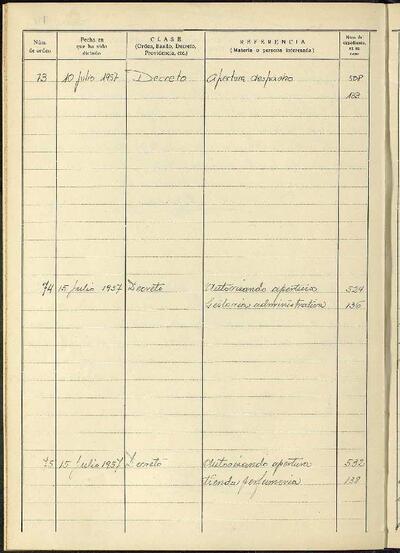 Núm. de orden
Fecha en que ha sido dictado
CLASE (Orden, Bando, Decreto, Providencia, etc.)
REFERENCIA (Materia o persona interesada)
Núm. de expediente, en su caso
73 10 julio 1957 Decreto Apertura despacho 508
182
74 15 Julio 1957 Decreto Autorizando apertura 524
Gestoria administrativa 136
75 15 Julio 1957 Decreto Autorizando apertura 532
tienda perfumeria 138